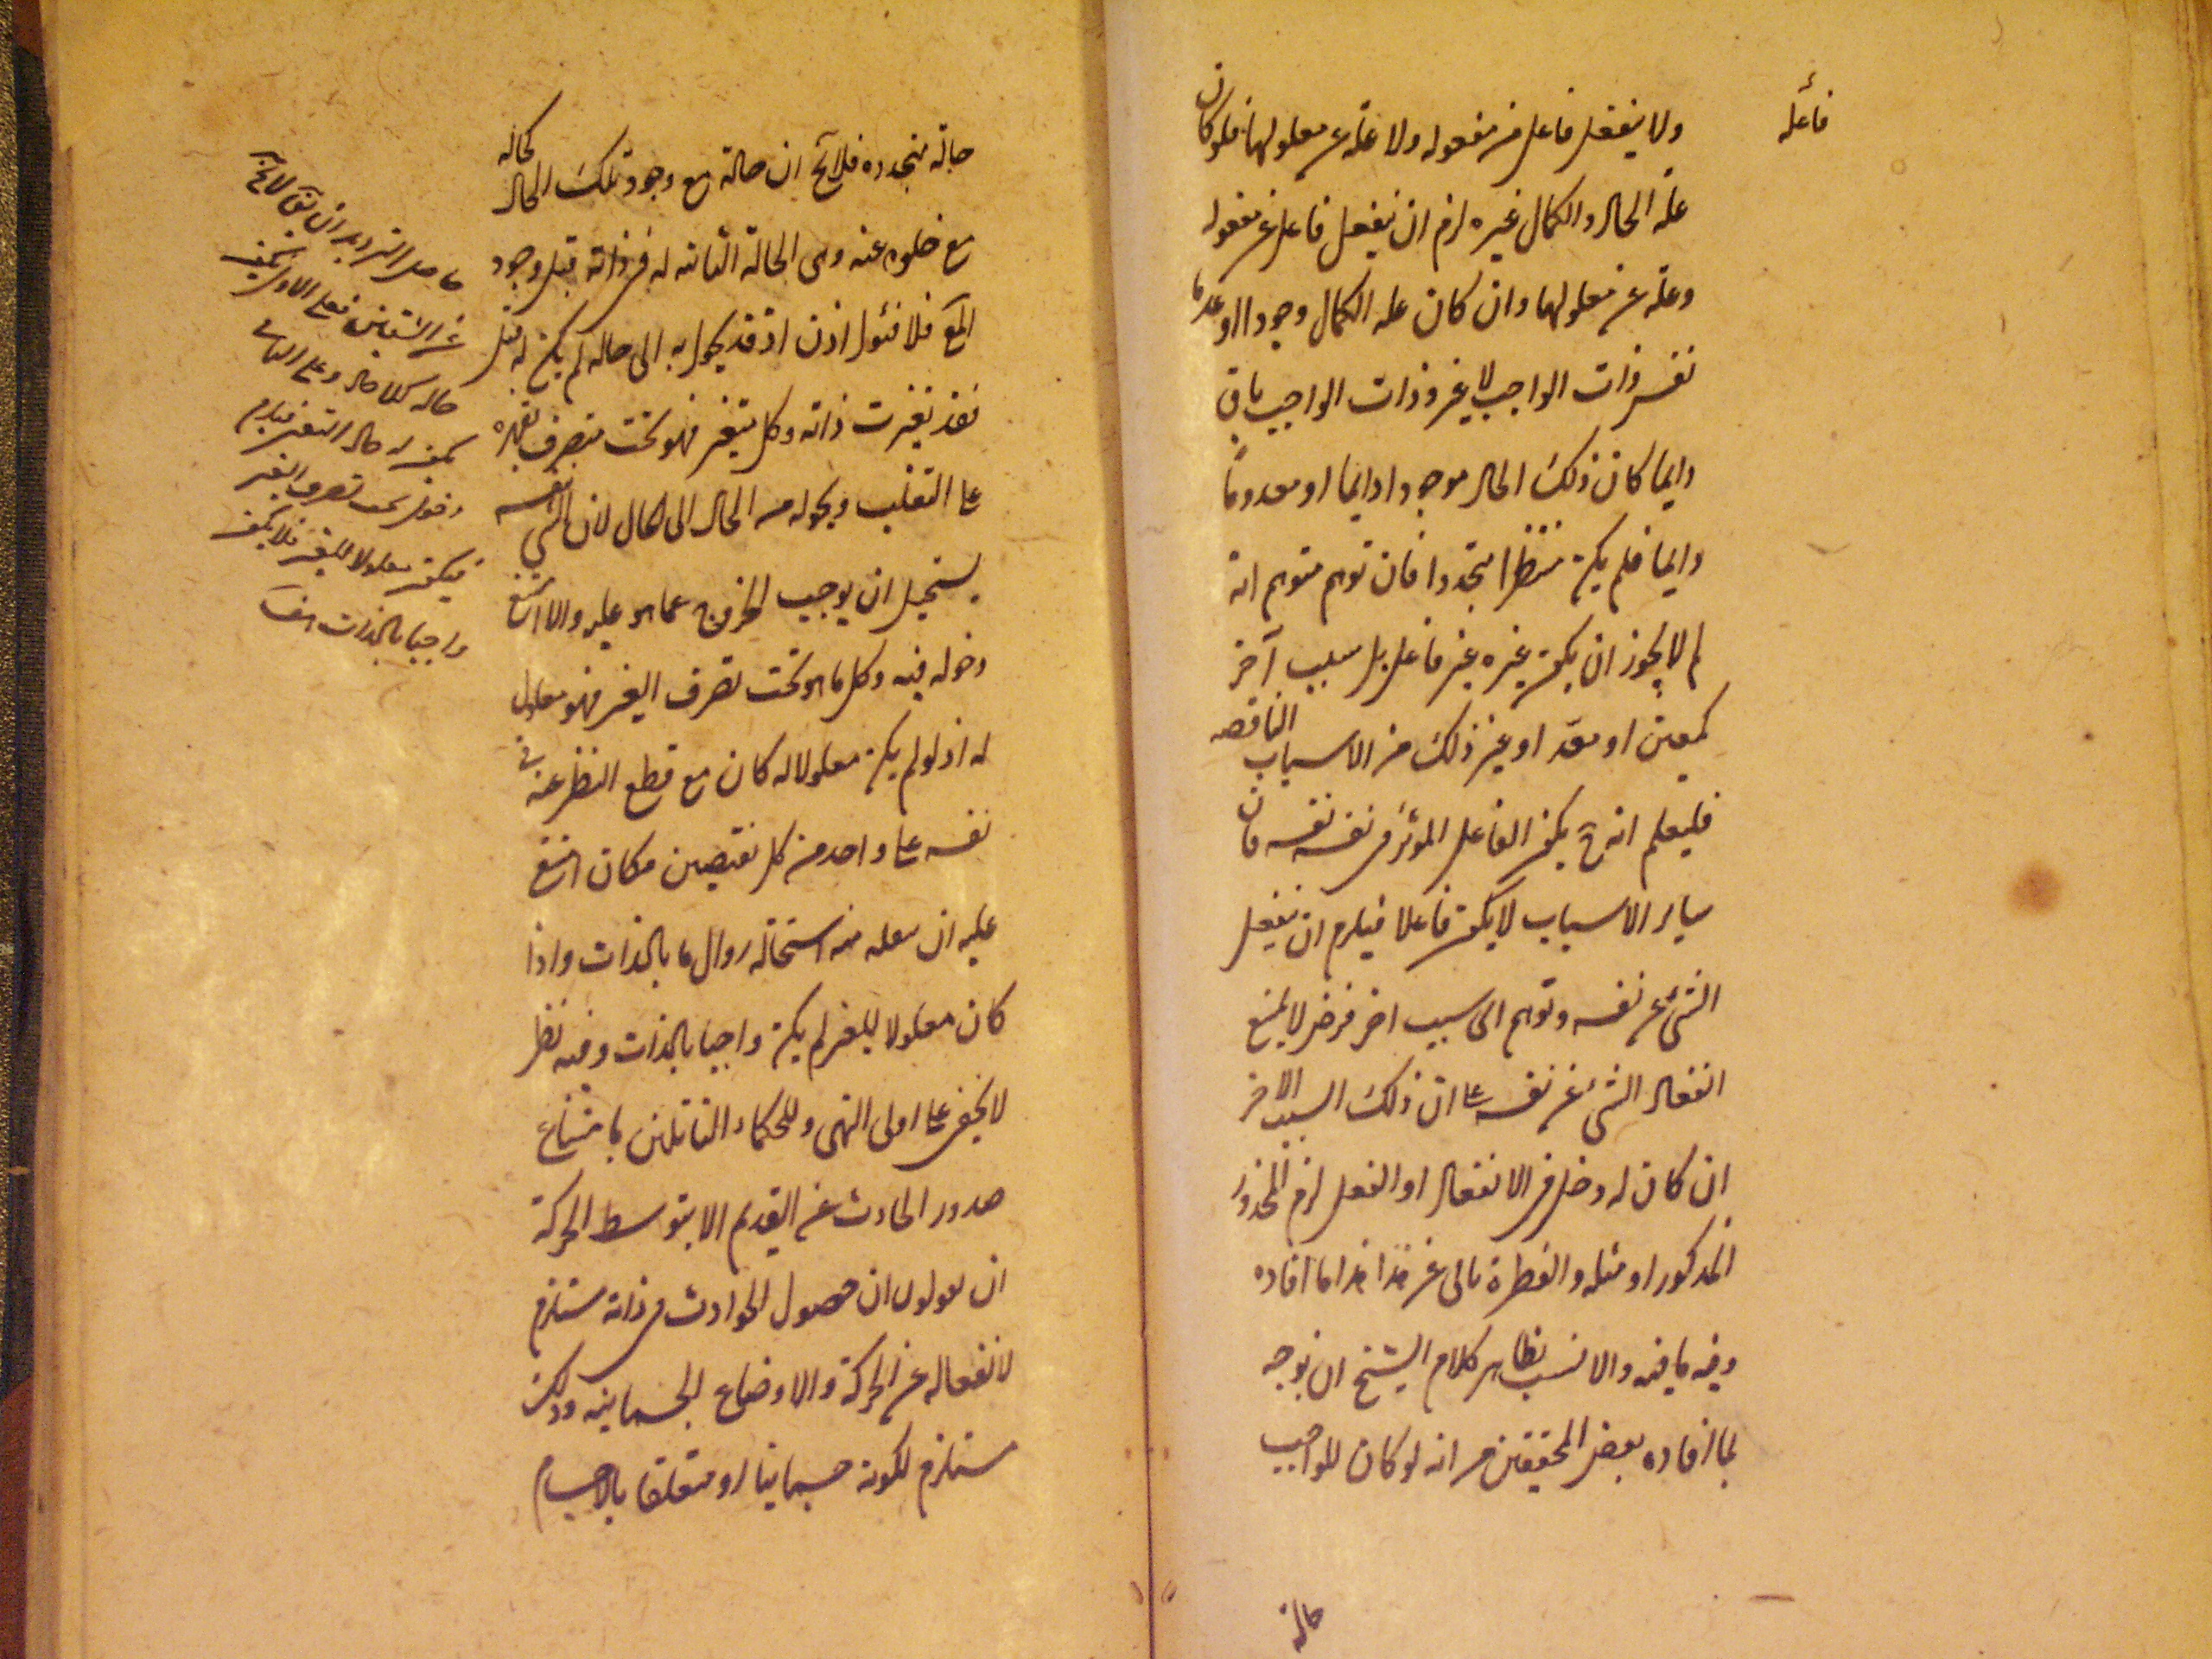 فاعله
ولا ينفعل فاعل من مفعوله ولا علة عن معلولها فلو كان
علة الحال والكمال غيره لزم ان ينفعل فاعل عن مفعوله
وعلة عن معلولها وان كان علة الكمال وجودا او عدما
نفس ذات الواجب لا غير وذات الواجب باق
دايما كان ذلك الحال موجودا دايما او معدوما
دايما فلم يكن منتظرا متجددا فان توهم متوهم انه
لم لا يجوز ان يكون غيره غير فاعل بل سبب آخر
كمعين او معد او غير ذلك من الاسباب الناقصه
فليعلم انه ح يكون الفاعل المؤثر في نفسه نفسه فان
ساير الاسباب لا يكون فاعلا فيلزم ان ينفعل
الشئ عن نفسه وتوهم الى سبب اخر فرض لا يمنع
انفعال الشئ عن نفسه على ان ذلك السبب الاخر
ان كان له دخل في الانفعال او الفعل لزم المحذور
المذكور او مثله والفطرة تابى عن هذا هذا ما افاده
وفيه ما فيه والانسب بظاهر كلام الشيخ ان يوجه
بما افاده بعض المحققين من انه لو كان للواجب
حالة
حالة متجدده فلا يخ ان حالة مع وجود تلك الحال كحاله
مع خلوه عنه وهى الحالة الثابته له في ذاته قبل وجود
فلا اذن اذ قد يحول به الى حاله لم يكن له قبل
فقد تغيرت ذاته وكل متغير فهو تحت متصرف يقهره
على التقلب ويحوله من الحال الى الحال لان الشئ نفسه
يستحيل ان يوجب الخروج عما هو عليه والا امتنع
دخوله فيه وكل ما هو تحت تصرف الغير فهو معلول
له اذ لو لم يكن معلولا له كان مع قطع النظر عنه في
نفسه على واحد من كل نقيضين فكان امتنع
عليه ان منه استحالة زوال ما بالذات واذا
كان معلولا للغير لم يكن واجبا بالذات وفيه نظر
لا يخفى على اولى النهى وللحكماء القائلين بامتناع
صدور الحادث عن القديم الا بتوسط الحركة
ان يقولوا ان حصول الحوادث في ذاته مستلزم
لانفعاله عن الحركة والاوضاع الجسمانيه وذلك
مستلزم لكونه جسمانيا او متعلقا بالاجسام
حاصل الترديد ان
عن الشقين فعلى الاول يكون
حاله كلا حاله وعلى الثانى
يكون له حال التغير فيلزم
دخوله تحت تصرف الغير
فيكون معلولا للغير فلا يكون
واجبا بالذات هف